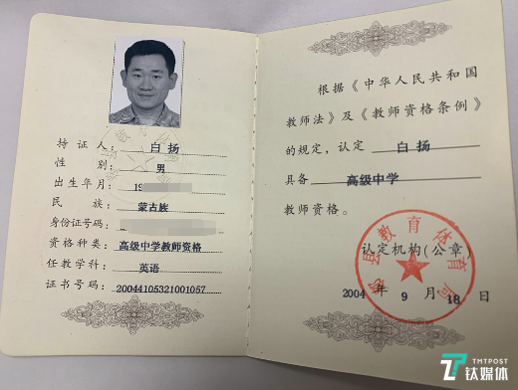 持证人：白扬
性别：男
出生年月：19
民族：蒙古族
身份证号码：
资格种类：高级中学教师资格
任教学科：英语
证书号码：20044105321001057
根据《中华人民共和国
教师法》及《教师资格条例》
的规定，认定 白扬
具备 高级中学
教师资格。
认定机构(公章)
县教育体育局
2004 年 9 月 18 日
TMTPOST
钛媒体